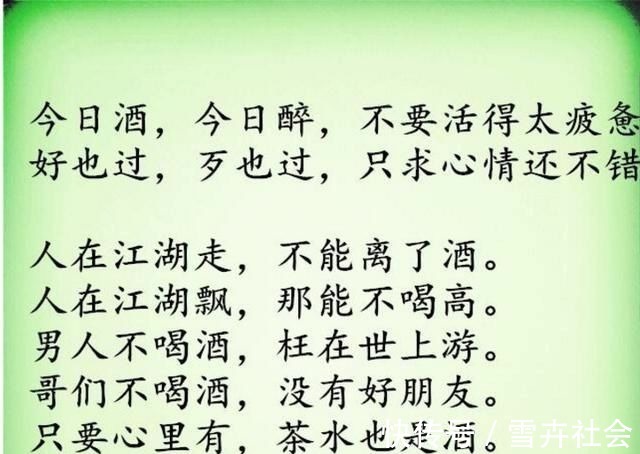 今日酒，今日醉，不要活得太疲惫
好也过，歹也过，只求心情还不错
人在江湖走，不能离了酒。
人在江湖飘，那能不喝高。
男人不喝酒，枉在世上游。
哥们不喝酒，没有好朋友。
只要心里有，茶水也是酒。
快传号 / 雪卉社会